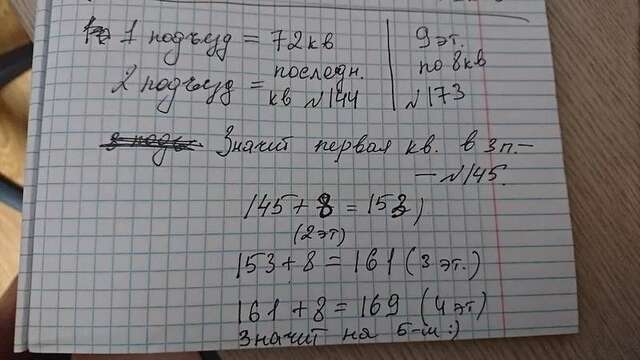 1 подъезд = 72 кв
2 подъезд = последн. кв №144
9 эт. по 8 кв
№173
Значит первая кв. в 3 п. –
– №145.
145 + 8 = 153)
(2 эт)
153 + 8 = 161 (3 эт.)
161 + 8 = 169 (4 эт)
Значит на 5-м :)